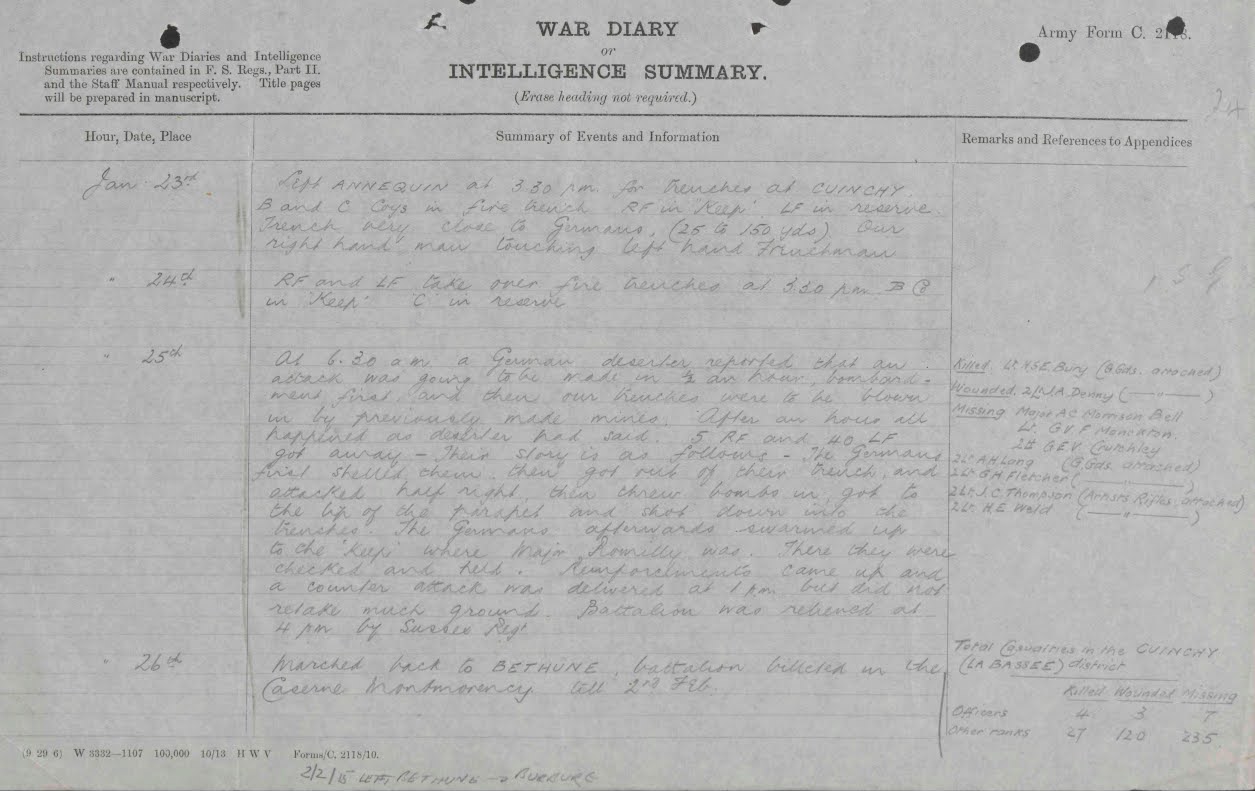 WAR DIARY
or
INTELLIGENCE SUMMARY.
(Erase heading not required.)
Army Form C. 2118.
Instructions regarding War Diaries and Intelligence
Summaries are contained in F. S. Regs., Part II.
and the Staff Manual respectively. Title pages
will be prepared in manuscript.
24
Hour, Date, Place
Summary of Events and Information
Remarks and References to Appendices
Jan. 23rd
Left ANNEQUIN at 3.30 pm for trenches at CUINCHY.
B and C Coys in fire trench RF in 'Keep'. LF in reserve.
Trench very close to Germans, (25 to 150 yds) Our
right hand man touching left hand Frenchman
" 24th
RF and LF take over fire trenches at 3.30 pm B
in 'Keep' 'C' in reserve
" 25th
At 6.30 am a German deserter reported that an
attack was going to be made in ½ an hour, bombard-
ment first, and then our trenches were to be blown
in by previously made mines. After an hour all
happened as deserter had said. 5 RF and 40 LF
got away – Their story is as follows – The Germans
first shelled them, then got out of their trench, and
attacked half right, then threw bombs in, got to
the lip of the parapet and shot down into the
trenches. The Germans afterwards swarmed up
to the 'Keep' where Major Romilly was. There they were
checked and held. Reinforcements came up and
a counter attack was delivered at 1 pm but did not
retake much ground. Battalion was relieved at
4 pm by Sussex Regt
Killed. Lt. HSE Bury (G.Gds. attached)
Wounded. 2/Lt J.A. Denny ( — " — )
Missing Major AC Morrison Bell
Lt. G V F Monckton.
2Lt G E V Crutchley
2Lt A.H. Lang (G.Gds. attached)
2Lt G.H. Fletcher ( — " — )
2Lt. J.C. Thompson (Artists Rifles attached)
2Lt. H.E. Weld ( — " — )
" 26th
Marched back to BETHUNE, battalion billeted in the
Caserne Montmorency till 2nd Feb.
Total Casualties in the CUINCHY
(LA BASSEE) district
Killed Wounded Missing
Officers 4 3 7
Other ranks 27 120 235
(9 29 6) W 3332—1107 100,000 10/13 H W V Forms/C. 2118/10.
2/2/15 LEFT BETHUNE →